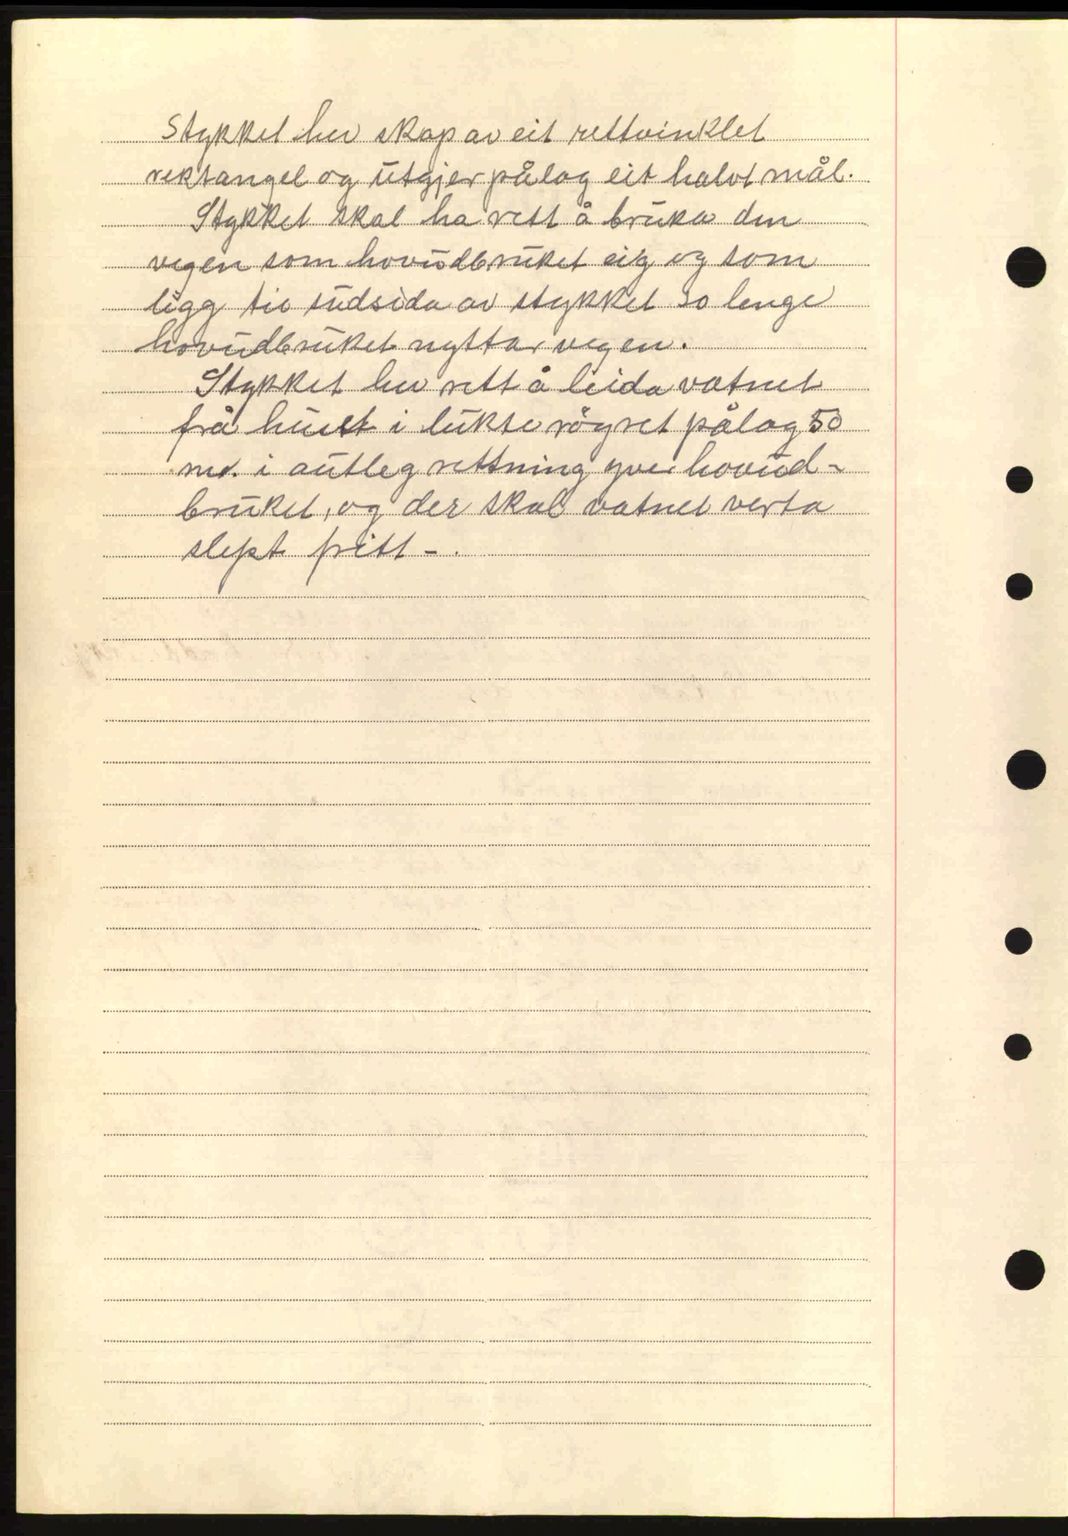 Stykket hev skap av eit rettvinklet
rektangel og utgjer pålag eit halvt mål.
Stykket skal ha rett å bruka den
vegen som hovudbruket eig og som
ligg tio sudsida av stykket so lenge
hovudbruket nyttar vegen.
Stykket hev rett å leida vatnet
frå huset i lukte röyret pålag 50
mtr. i austleg rettning yver hovud-
bruket, og der skal vatnet verta
slept fritt -.